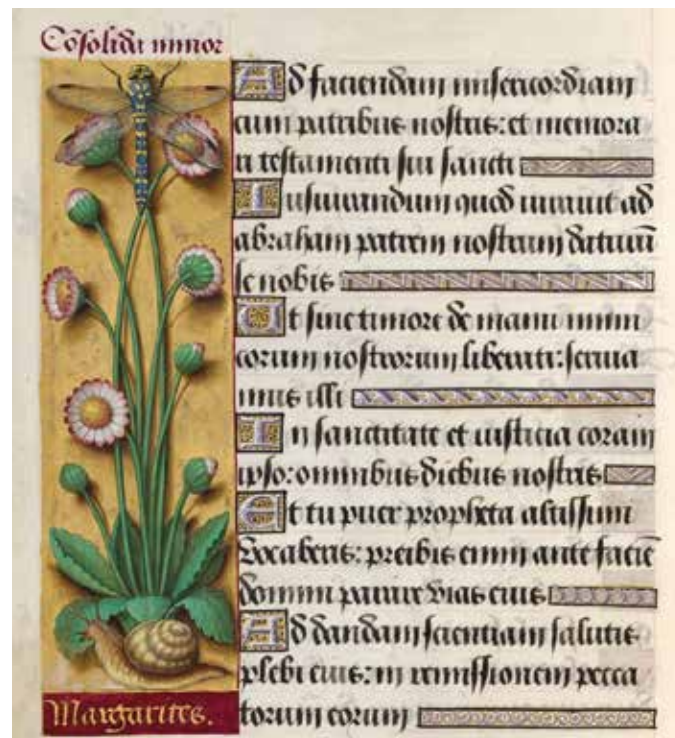 Cõsolida minor
Ad faciendam misericordiam
cum patribus nostris: et memora
ri testamenti sui sancti
Iusiurandum quod iuravit ad
abraham patrem nostrum daturũ
se nobis
Ut sine timore de manu inimi
corum nostrorum liberati: servia
mus illi
In sanctitate et iusticia coram
ipso: omnibus diebus nostris
Et tu puer propheta altissimi
Vocaberis: preibis enim ante faciẽ
domini parare vias eius
Ad dandam scientiam salutis
plebi eius: in remissionem pecca
torum eorum
Margarites.